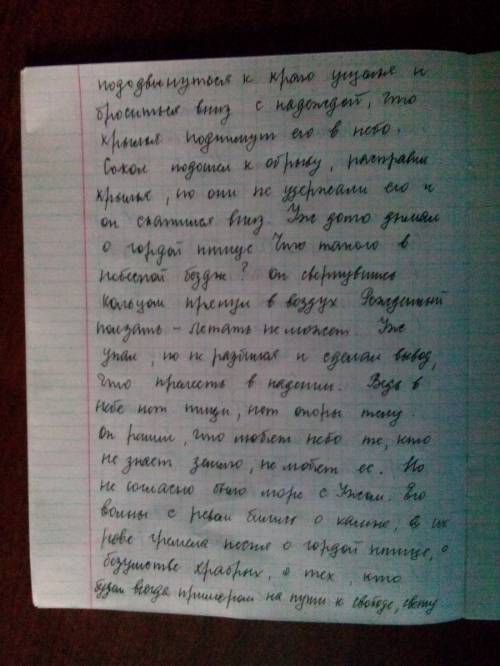 пододвинуться к краю ущелья и
броситься вниз с надеждой, что
крылья поднимут его в небо.
Сокол подошел к обрыву, расправил
крылья, но они не удержали его и
он скатился вниз. Уж долго думал
о гордой птице Что такого в
небесной бездне? он свернувшись
кольцом прянул в воздух Рожденный
ползать - летать не может. Уж
упал, но не разбился и сделал вывод,
что прелесть в падении. Ведь в
небе нет пищи, нет опоры телу.
Он решил, что любят небо те, кто
не знает землю, не любят ее. Но
не согласно было море с Ужом. Его
волны с ревом бились о камни, в их
реве гремела песня о гордой птице, о
безумстве храбрых, о тех, кто
будет всегда примером на пути к свободе, свету